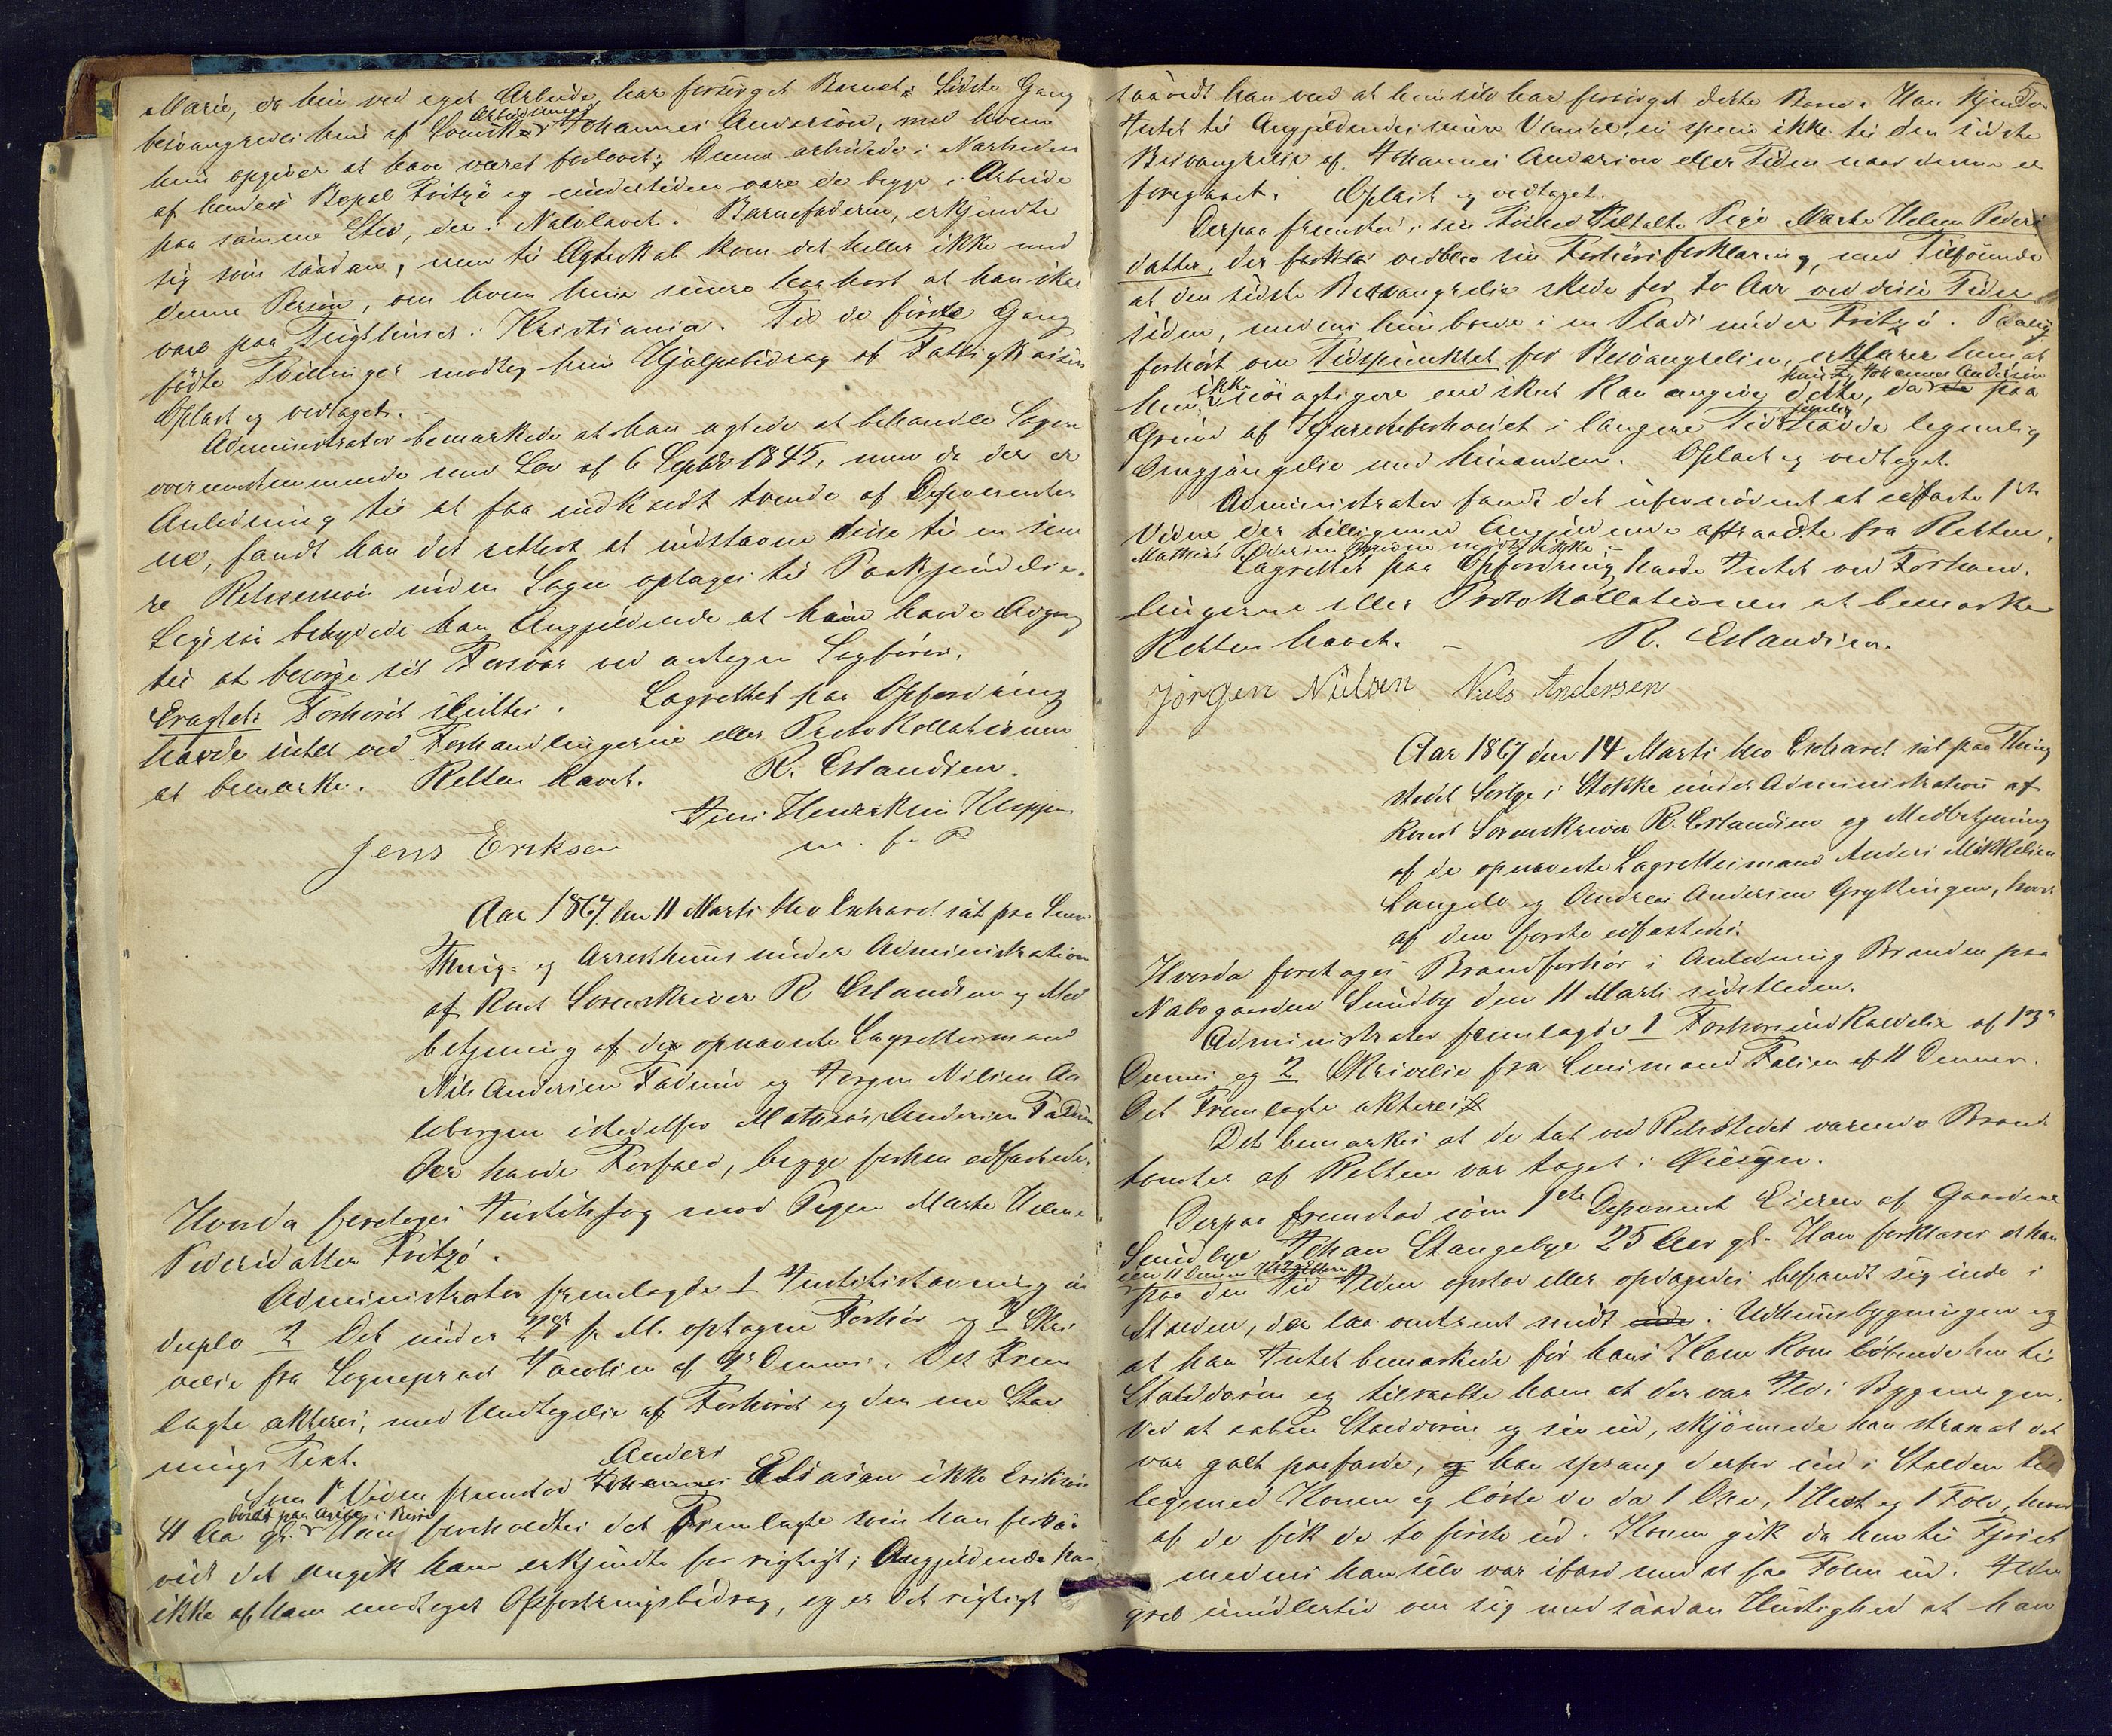 Marie, da hun ved eget Arbeide har forsørget Barnet. Sidste Gang
besvangredes hun af Svensk Arbeidsmand Johannes Andersøn, med hvem
hun opgiver at have været forlovet; Denne arbeidede i Nærheden
af hendes Bopæl Fritzø og undertiden vare de begge i Arbeide
paa samme Sted, der i Nalolavet. Barnefaderen, erkjendte
sig som saadan, men til Ægteskab kom det heller ikke med
denne Person, om hvem hun senere har hørt at han skal
være paa Tugthuset i Kristiania. Til de første Gang
fødte Tvillinger modtog hun Hjælpebidrag af Fattigkassen
Oplæst og vedtaget.
Administrator bemærkede at han agtede at behandle Sagen
overensstemmende med Lov af 6 Septbr 1845, men da der er
Anledning til at faa indkaldt tvende af Deponenter
ne, fandt han det rettest at udstævne disse til en sene
re Retssession inden Sagen optages til Paakjendelse.
Ligesaa betydede han Angjeldende at hun havde Adgang
til at besørge sit Forsvar ved antagen Sagfører.
Eragtet: Forhøret sluttes. Lagrettet paa Opfordring
havde intet ved Forhandlingerne eller Protokollationen
at bemærke. Retten hævet. R. Erlandsen.
Jens Henriksen Kleppen
Jens Eriksen m. f. P.
Aar 1867 den 11 Marts blev Extraret sat paa Laur.
Thing- og Arresthuus under Administration
af Konst Sorenskriver R Erlandsen og Med
betjening af de opnævnte Lagrettesmænd
Nils Andersen Fadum og Jørgen Nilsen Aa
lebergen istedetfor Mathias Andersen Fadum
der havde Forfald, begge forhen edfæstede.
Hvorda foretoges Justitssag mod Pigen Marte Helene
Pedersdatter Fritzø.
Administrator fremlagde 1 Justitsstævning in
duplo 2 Det under 28 f. M. optagne Forhør og 3 Skri
velse fra Sogneprest Jacobsen af 9de Dennes. Det Frem
lagte akteres, med Undtagelse af Forhøret og den ene Stæv
nings Text.
Som 1ste Vidne fremstod Johannes Anders Eliasøn ikke Eriksøn
41 Aar gl. bosat paa Aside i Reise Han foreholdtes det Fremlagte som han forsaa
vidt det angik ham erkjendte for rigtigt; Angjeldende har
ikke af ham modtaget Opfostringsbidrag, og er det rigtigt
saavidt han ved at hun selv har forsørget dette Barn. Han kjender
Intet til Angjeldendes senere Vandel, in specie ikke til den sidste
Besvangrelse af Johannes Andersen eller Tiden naar denne er
foregaaet. Oplæst og vedtaget.
Derpaa fremstod i sin Frihed Tiltalte Pige Marte Helene Peders
datter, der forkla vedblev sin Forhørsforklaring, med Tilføiende
at den sidste Besvangrelse skede for to Aar ved disse Tider
siden, medens hun boede i en Plads under Fritzø. Nøiagtig
forhørt om Tidspunktet for Besvangrelsen, erklærer hun at
hun ikke nøiagtigere end skeet kan angive dette, da de hun og Johannes Andersøn paa
Grund af Kjæresteforholdet i længere Tid jevnlig havde legemlig
Omgjængelse med hinanden. Oplæst og vedtaget.
Administrator fandt det ufornødent at edfæste 1ste
Vidne, der tilligemed Angjeldende aftraadte fra Retten.
Mathias Andersen Fadum mødte ikke.
Lagrettet paa Opfordring havde Intet ved Forhand.
lingerne eller Protokollationen at bemærke
Retten hævet. – R. Erlandsen.
Jørgen Nilsen Niels Andersen
Aar 1867 den 14 Marts blev Extraret sat paa Thing
stedet Sørbye i Stokke under Administration af
Konst Sorenskriver R. Erlandsen og Medbetjening
af de opnævnte Lagrettesmænd Anders Mikkelsen
Langelo og Andreas Andersen Gryttingen, hvor
af den første edfæstedes.
Hvorda foretages Brandforhør i Anledning Branden paa
Nabogaarden Sundby den 11 Marts sidstleden.
Administrator fremlagde 1 Forhørsindkaldelse af 13de
Dennes og 2 Skrivelse fra Lensmand Falsen af 11 Dennes.
Det Fremlagte akteres
Det bemærkes at de tæt ved Retsstedet værende Brand
tomter af Retten var taget i Øiesyn.
Derpaa fremstod som 1ste Deponent Eieren af Gaarden
Sundbye Johan Stangebye 25 Aar gl. Han forklarer at han
paa den Tid den 11 Dennes Kl 2 Efterm Ilden opstod eller opdagedes befandt sig inde i
Stalden, der laa omtrent midt inde i Udhuusbygningen og
at han Intet bemærkede før hans Kone kom løbende hen til
Stalddøren og tilraabte ham at der var Ild i Bygningen.
Ved at aabne Stalddøren og see ud, skjønnede han strax at det
var galt paafærde, og han sprang derfor ind i Stalden til
ligemed Konen og løste de da 1 Oxe, 1 Hest og 1 Fole, hvor
af de fik de to første ud. Konen gik da hen til Fjøset
medens han selv var ifærd med at faa Folen ud. Ilden
greb imidlertid om sig med saadan Hurtighed at han